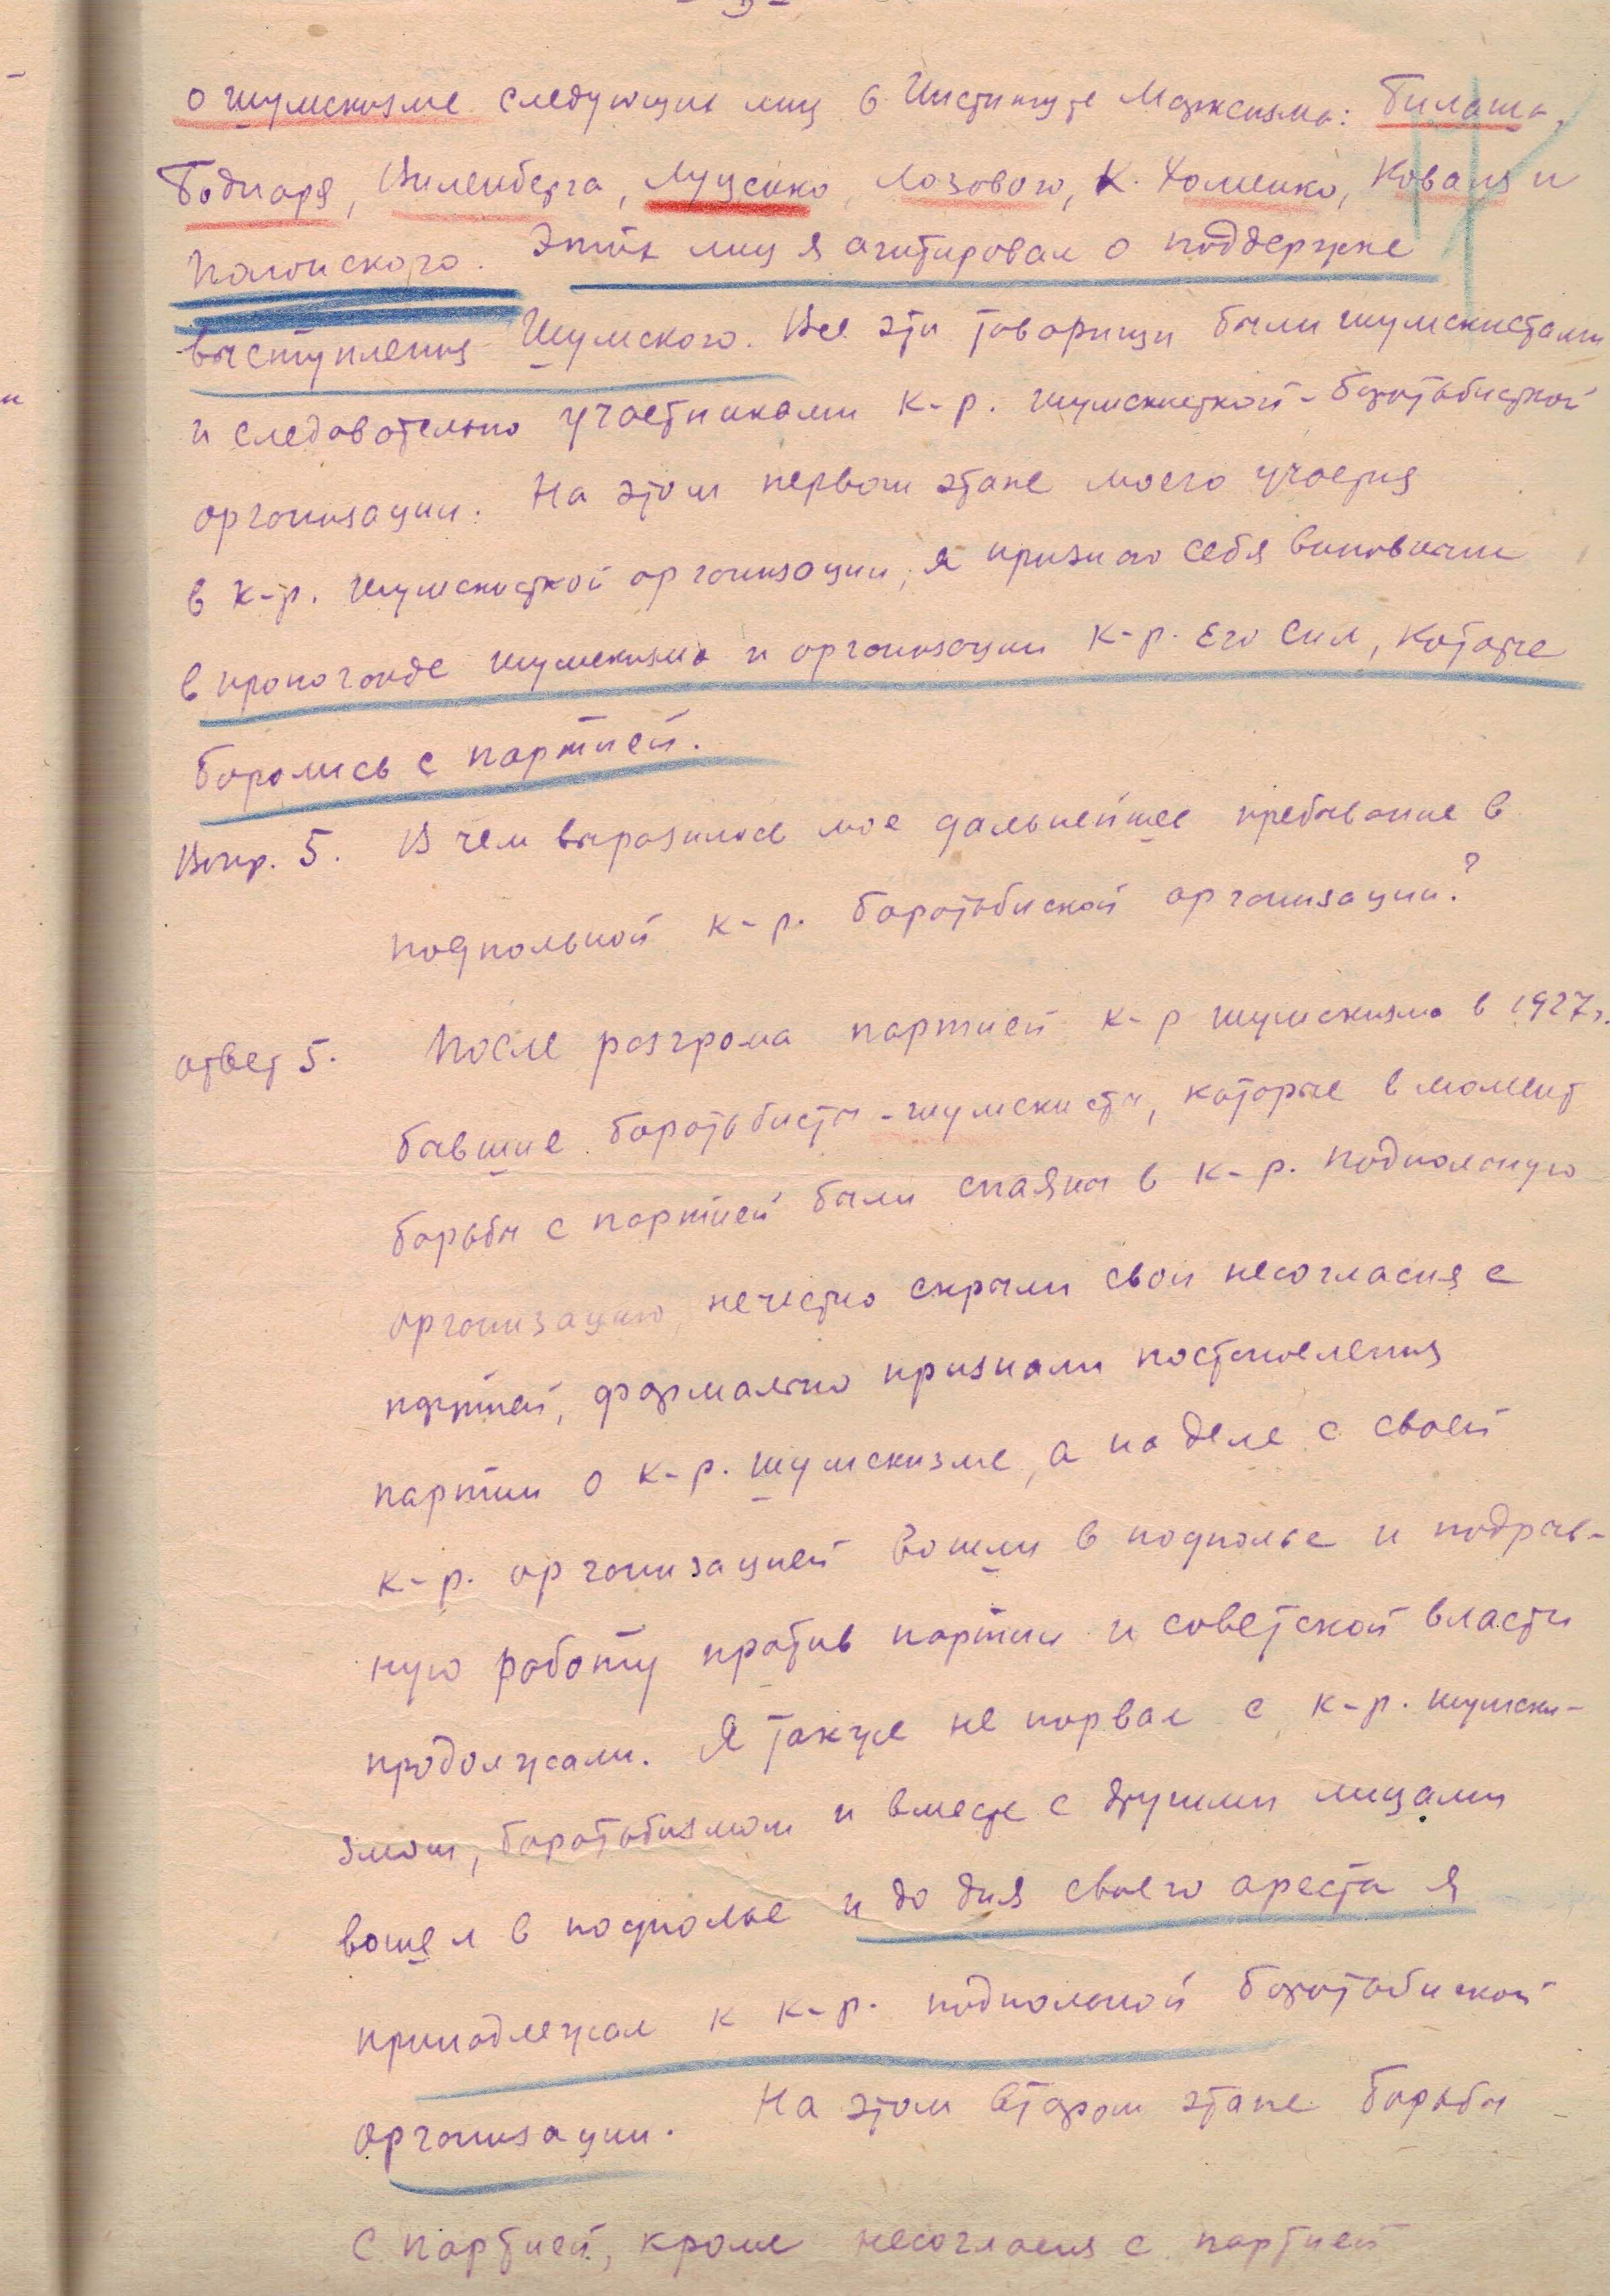 - 5 -
о шумскизме следующих лиц в Институте Марксизма: Билаша,
Боднаря, Виленберга, Луценко, Лозового, К. Хоменко, Коваля и
Полонского. Этих лиц я агитировал о поддержке
выступления Шумского. Все эти товарищи были шумскистами
и следовательно участниками к-р. шумскисткой-боротьбисткой
организации. На этом первом этапе моего участия
в к-р. шумскисткой организации, я признаю себя виновным
в пропоганде шумскизма и организации к-р. его сил, которые
боролись с партией.
Вопр. 5. В чем выразилось мое дальнейшее пребывание в
подпольной к-р. боротьбиской организации?
Ответ 5. После розгрома партией к-р шумскизма в 1927 г.
бывшие боротьбисты-шумскисты, которые в момент
борьбы с партией были спаяны в к-р. подпольную
организацию, нечестно скрыли свои несогласия с
партией, формально признали постановления
партии о к-р. шумскизме, а на деле с своей
к-р. организацией вошли в подполье и подрыв-
ную работу против партии и советской власти
продолжали. Я также не порвал с к-р. шумски-
змом, боротьбизмом и вместе с другими лицами
вошел в подполье и до дня своего ареста я
принадлежал к к-р. подпольной боротьбиской
организации. На этом втором этапе борьбы
с партией, кроме несогласия с партией